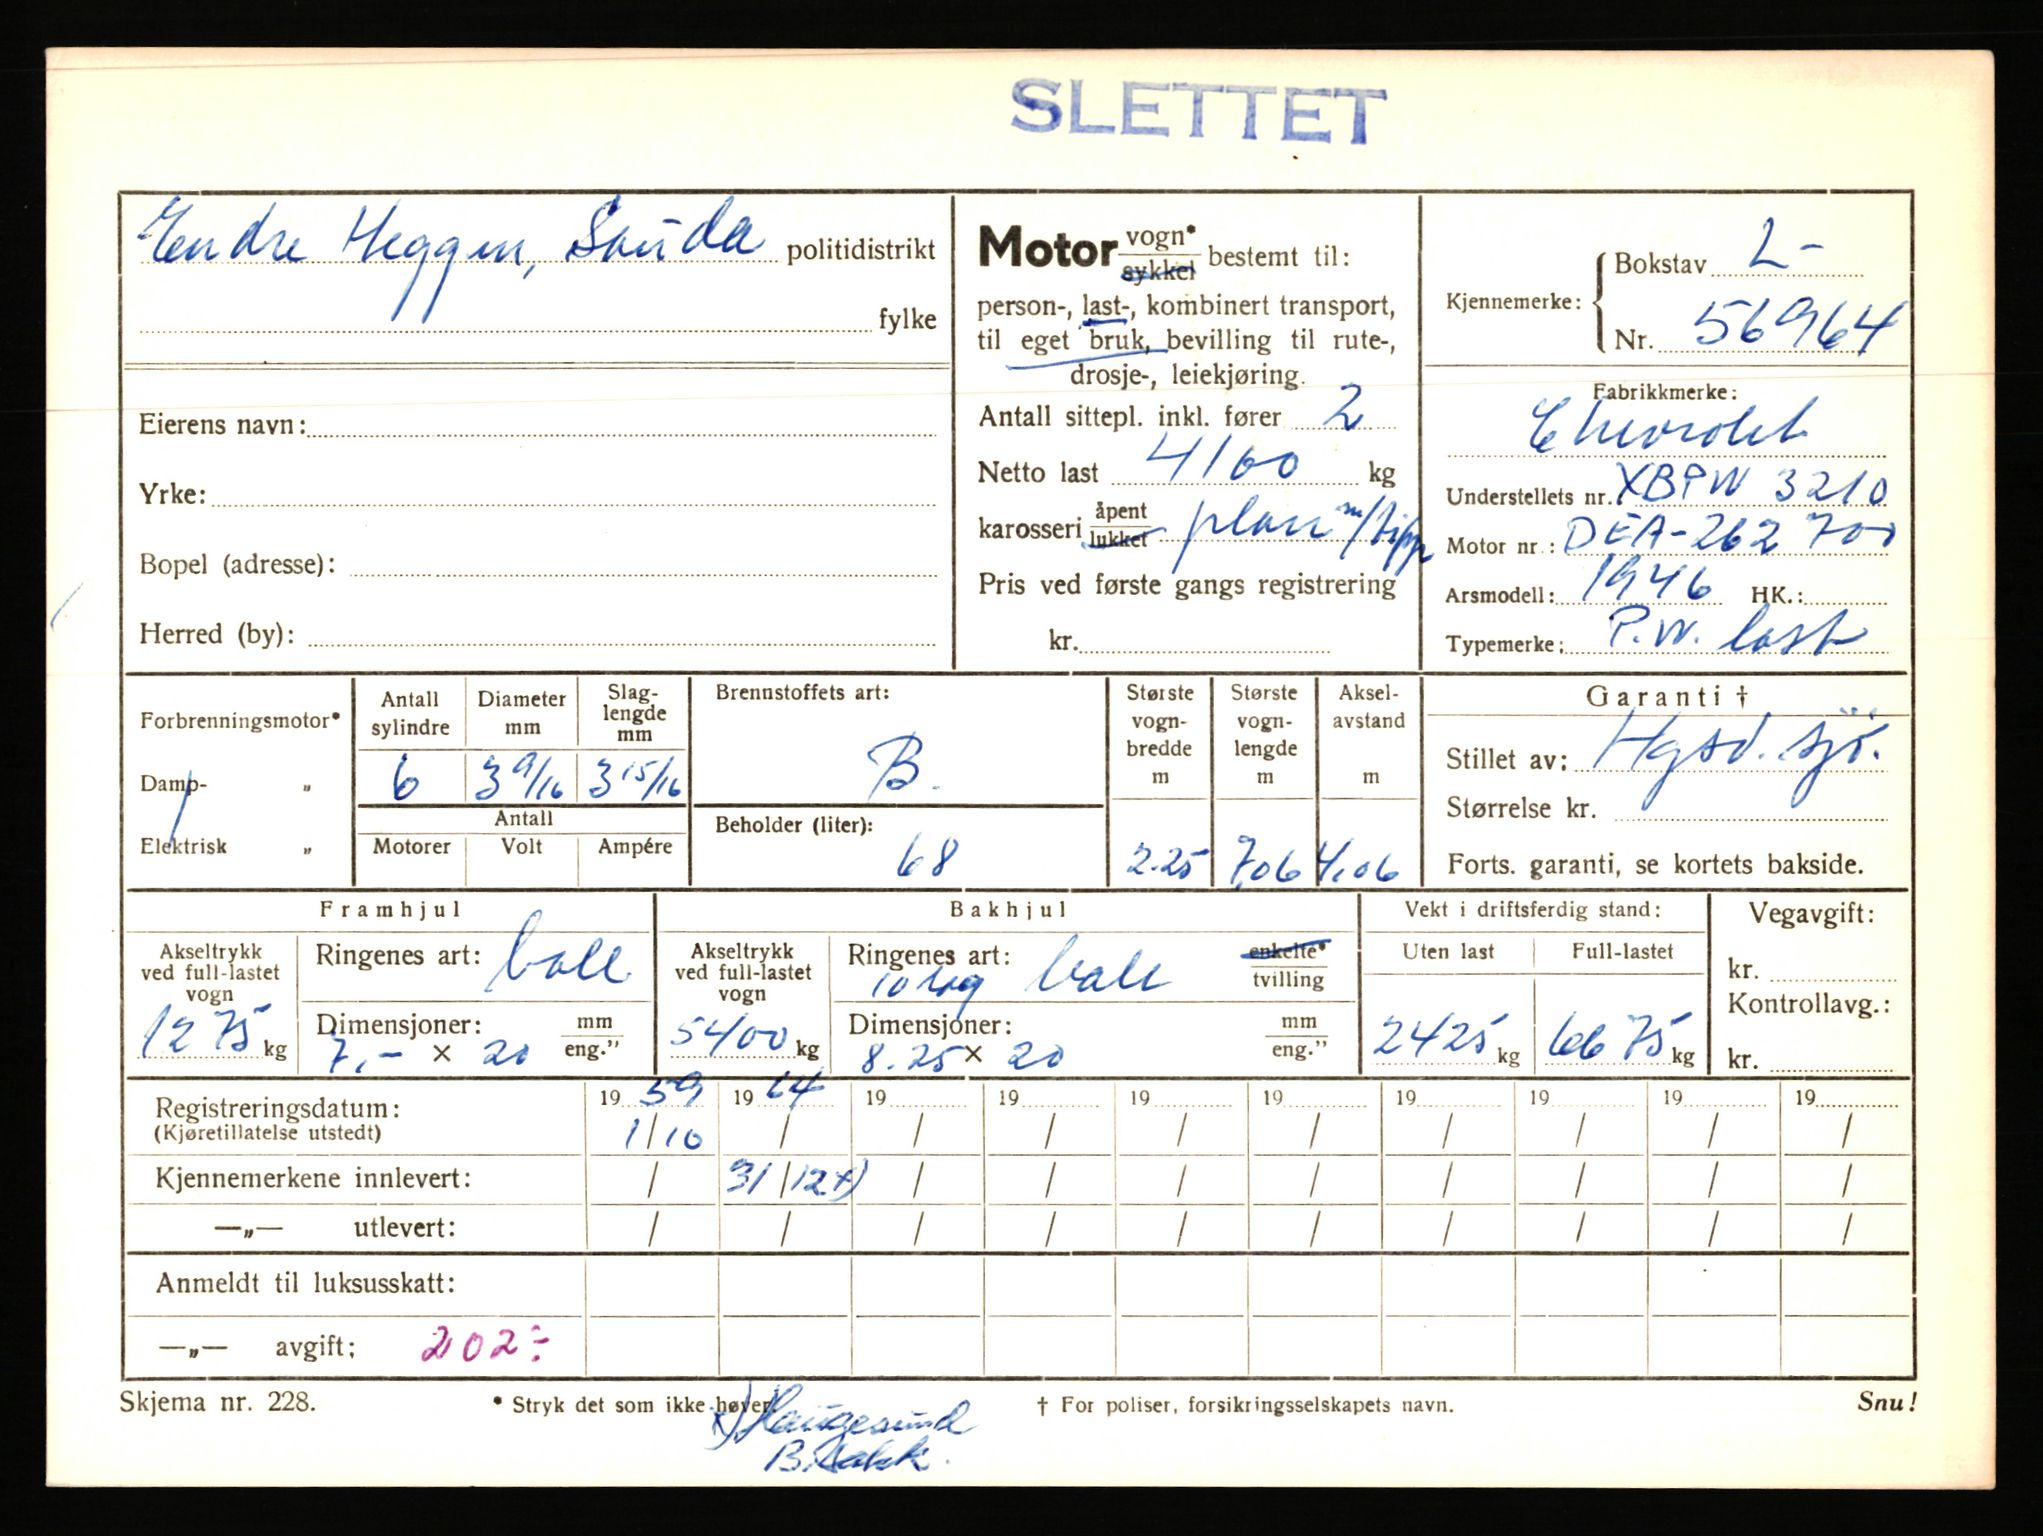 SLETTET
Endre Heggen, Sauda politidistrikt
fylke
Eierens navn:
Yrke:
Bopel (adresse):
Herred (by):
Motor vogn* sykkel bestemt til:
person-, last-, kombinert transport,
til eget bruk, bevilling til rute-,
drosje-, leiekjøring.
Antall sittepl. inkl. fører 2
Netto last 4100 kg
karosseri åpent lukket plan m/tipp
Pris ved første gangs registrering
kr.
Kjennemerke: Bokstav L-
Nr. 56964
Fabrikkmerke:
Chevrolet
Understellets nr. XBPW 3210
Motor nr.: DEA-262 700
Arsmodell: 1946 HK.:
Typemerke: P.W. last
Forbrenningsmotor*
Damp- „
Elektrisk „
Antall sylindre 6
Diameter mm 3 9/16
Slag-lengde mm 3 15/16
Antall
Motorer Volt Ampére
Brennstoffets art:
B.
Beholder (liter):
68
Største vogn-bredde m 2.25
Største vogn-lengde m 7,06
Aksel-avstand m 4,06
Garanti †
Stillet av: Hgsd. sjø.
Størrelse kr.
Forts. garanti, se kortets bakside.
Framhjul
Akseltrykk ved full-lastet vogn 1275 kg
Ringenes art: ball
Dimensjoner: 7,- × 20 mm eng."
Bakhjul
Akseltrykk ved full-lastet vogn 5400 kg
Ringenes art: 10 lag ball enkelte* tvilling
Dimensjoner: 8.25 × 20 mm eng."
Vekt i driftsferdig stand:
Uten last 2425 kg
Full-lastet 6675 kg
Vegavgift:
kr.
Kontrollavg.:
kr.
Registreringsdatum: 19 59 19 64 19 19 19 19 19 19 19 19
(Kjøretillatelse utstedt) 1/10 / / / / / / / / /
Kjennemerkene innlevert: / 31/12 x) / / / / / / / /
—„— utlevert: / / / / / / / / / /
Anmeldt til luksusskatt:
—„— avgift: 202÷
Skjema nr. 228. * Stryk det som ikke høver. † For poliser, forsikringsselskapets navn. Snu!
x) Haugesund